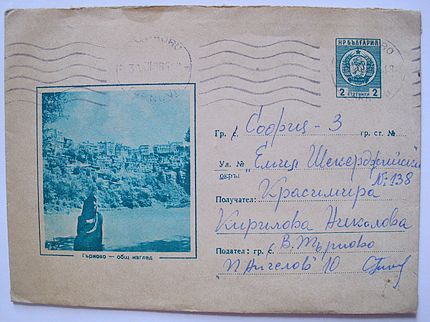 НР БЪЛГАРИЯ
2 СТОТИНКИ 2
Гр. с. София - 3 гр. ст. №
Ул. № "Емил Шекерджийски"
окръг № 138
Получател: Красимира
Кирилова Николова
Подател: гр. с. В. Търново
"П. Ангелов" 10
Търново — общ изглед